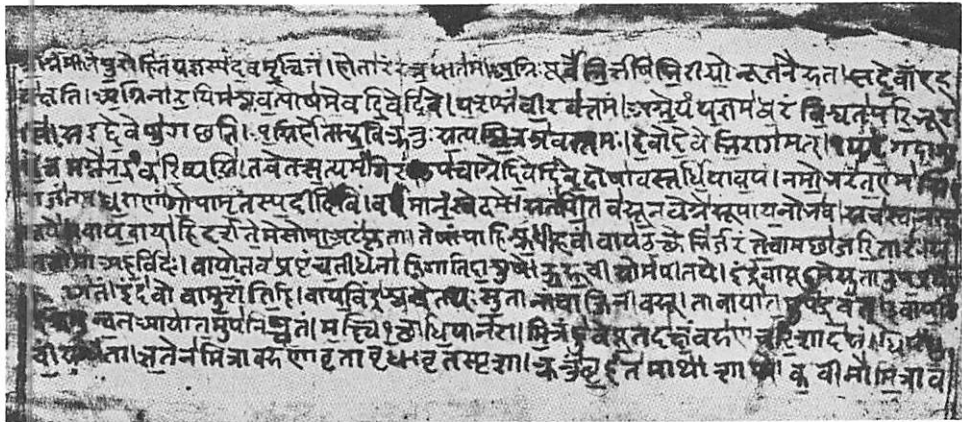 पुरोहितं यज्ञस्य देवमृत्विजं । होतारं रत्नधातमं । अग्निः पूर्वेभिर्ऋषिभिरीड्यो नूतनैरुत । स देवाँ एह
वक्षति । अग्निना रयिमश्नवत्पोषमेव दिवेदिवे । यशसं वीरवत्तमं । अग्ने यं यज्ञमध्वरं विश्वतः परिभूर
स इद्देवेषु गछति । अग्निर्होता कविक्रतुः सत्यश्चित्रश्रवस्तमः । देवो देवेभिरागमत् ।
त्वमग्ने भद्रं करिष्यसि । तवेत्तत्सत्यमंगिरः । उप त्वाग्ने दिवेदिवे दोषावस्तर्धिया वयं । नमो भरंत एमसि
राजंतमध्वराणां गोपामृतस्य दीदिविं । वर्धमानं स्वे दमे । स नः पितेव सूनवेग्ने सूपायनो भव ।
वायवायाहि दर्शतेमे सोमा अरंकृताः । तेषां पाहि श्रुधी हवं । वाय उक्थेभिर्जरंते त्वामछा जरितारः ।
अहर्विदः । वायो तव प्रपृंचती धेना जिगाति दाशुषे । उरूची सोमपीतये । इंद्रवायू इमे सुता
गतं । इंदवो वामुशंति हि । वायविंद्रश्च चेतथः सुतानां वाजिनीवसू । तावायातमुप द्रवत् । वायवि
सुन्वत आयातमुप निष्कृतं । मक्ष्वि१त्था धिया नरा । मित्रं हुवे पूतदक्षं वरुणं च रिशादसं ।
साधंता । ऋतेन मित्रावरुणावृतावृधावृतस्पृशा । क्रतुं बृहंतमाशाथे । कवी नो मित्राव